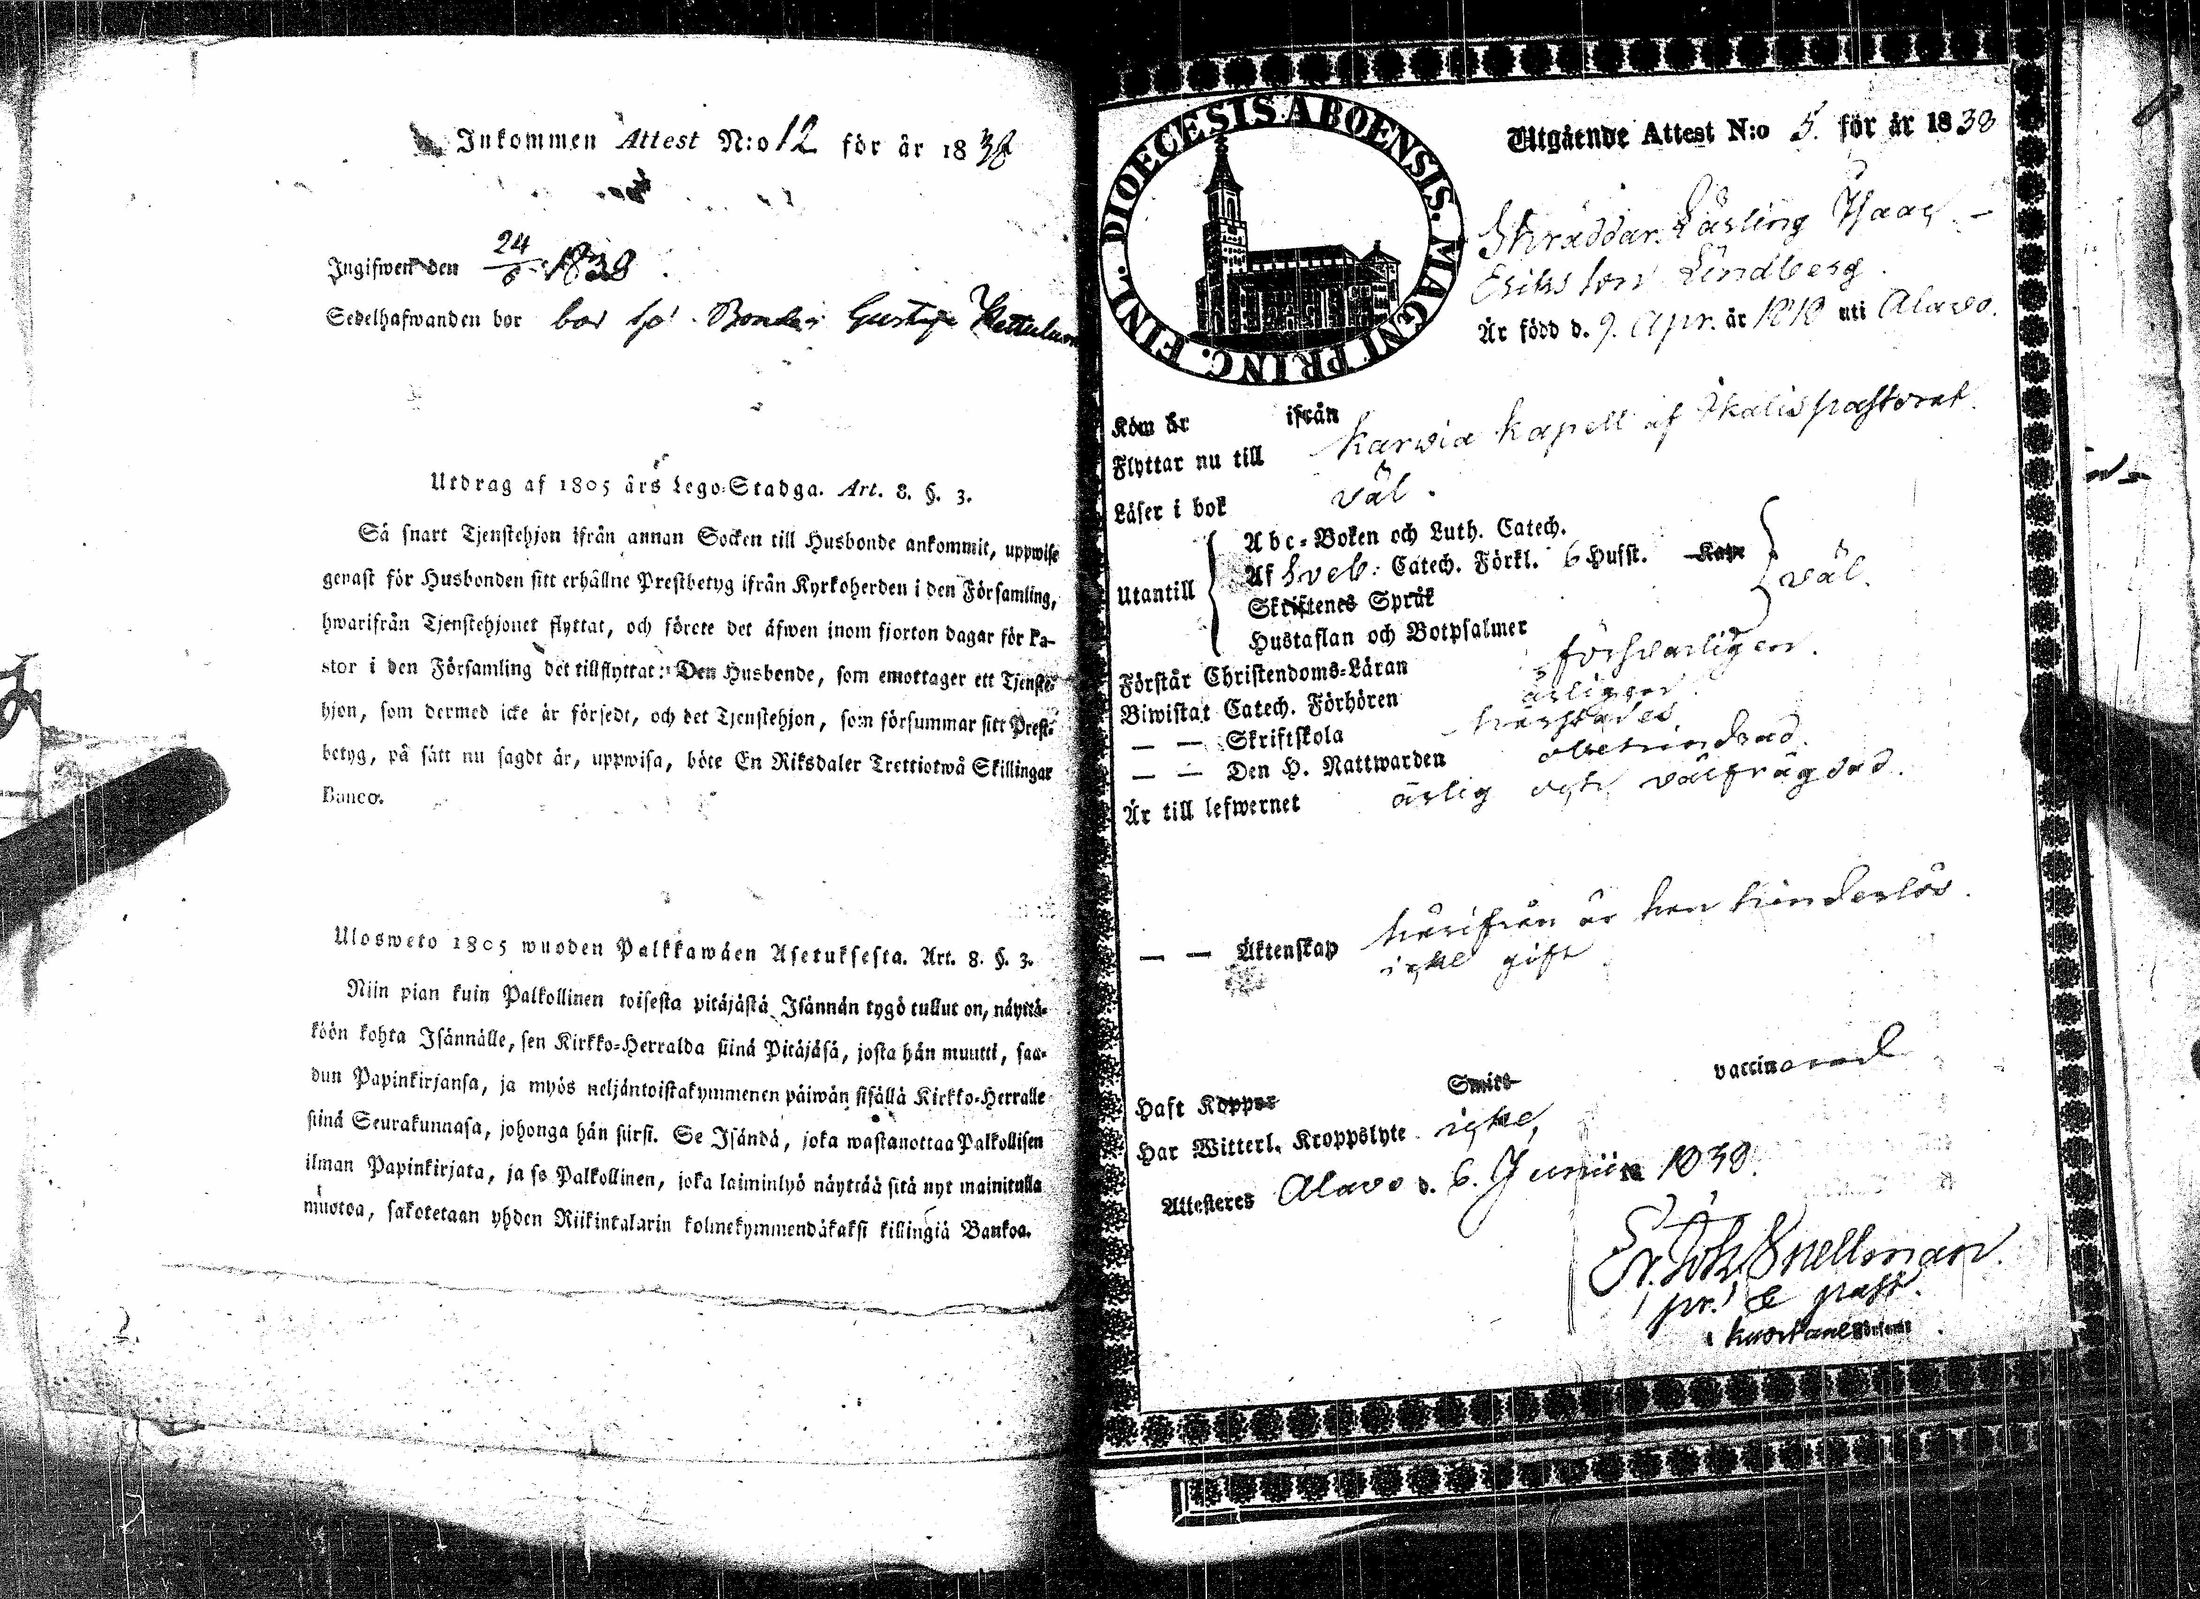 Inkommen Attest N:o 12 för år 1838
Ingifwen den 24/6 1838
Sedelhafwanden bor bor hos Bonden Gustaf
Utdrag af 1805 års Lego-Stadga. Art. 8. §. 3.
Så snart Tjenstehjon ifrån annan Socken till Husbonde ankommit, uppwise
genast för Husbonden sitt erhållne Prestbetyg ifrån Kyrkoherden i den Församling,
hwarifrån Tjenstehjonet flyttat, och förete det äfwen inom fjorton dagar för Pa-
stor i den Församling det tillflyttat: Den Husbonde, som emottager ett Tjenste-
hjon, som dermed icke är försedt, och det Tjenstehjon, som försummar sitt Prest-
betyg, på sätt nu sagdt är, uppwisa, böte En Riksdaler Trettiotwå Skillingar
Banco.
Ulosweto 1805 wuoden Palkkawäen Asetuksesta. Art. 8. §. 3.
Niin pian kuin Palkollinen toisesta pitäjästä Isännän tygö tullut on, näyttä-
köön kohta Isännälle, sen Kirkko-Herralda siinä Pitäjäsä, josta hän muutti, saa-
dun Papinkirjansa, ja myös neljäntoistakymmenen päiwän sisällä Kirkko-Herralle
siinä Seurakunnasa, johonga hän siirsi. Se Isändä, joka wastanottaa Palkollisen
ilman Papinkirjata, ja se Palkollinen, joka laiminlyö näyttää sitä nyt mainitulla
muotoa, sakotetaan yhden Riikintalarin kolmekymmendäkaksi killingiä Bankoa.
FINL. DIOECESIS ABOENSIS. MAGNI PRINC.
Utgående Attest N:o 5. för år 1838
Skräddar Lärling Isaac
Eriksson Lindberg.
Är född d. 9. Apr. år 1818 uti Alavo.
Köm år ifrån
Flyttar nu till Karvia kapell af Ikalis pastorat.
Läser i bok väl.
Utantill
Abc-Boken och Luth. Catech.
Af Sveb: Catech. Förkl. 6 Husst. Kap
Skriftenes Språk
Hustaflan och Botpsalmer
väl.
Förstår Christendoms-Läran försvarligen.
Biwistat Catech. Förhören årligen
— — Skriftskola härstädes
— — Den H. Nattwarden obehindrad.
Är till lefwernet ärlig och välfrägdad.
— — Äktenskap härifrån är han hinderlös.
icke gift
Haft Koppor Smitt vaccinerad
Har Witterl. Kroppslyte icke,
Attesteres Alavo d. 6. Junii 1838.
Joh. Snellman
pr. e past.
i Församl.